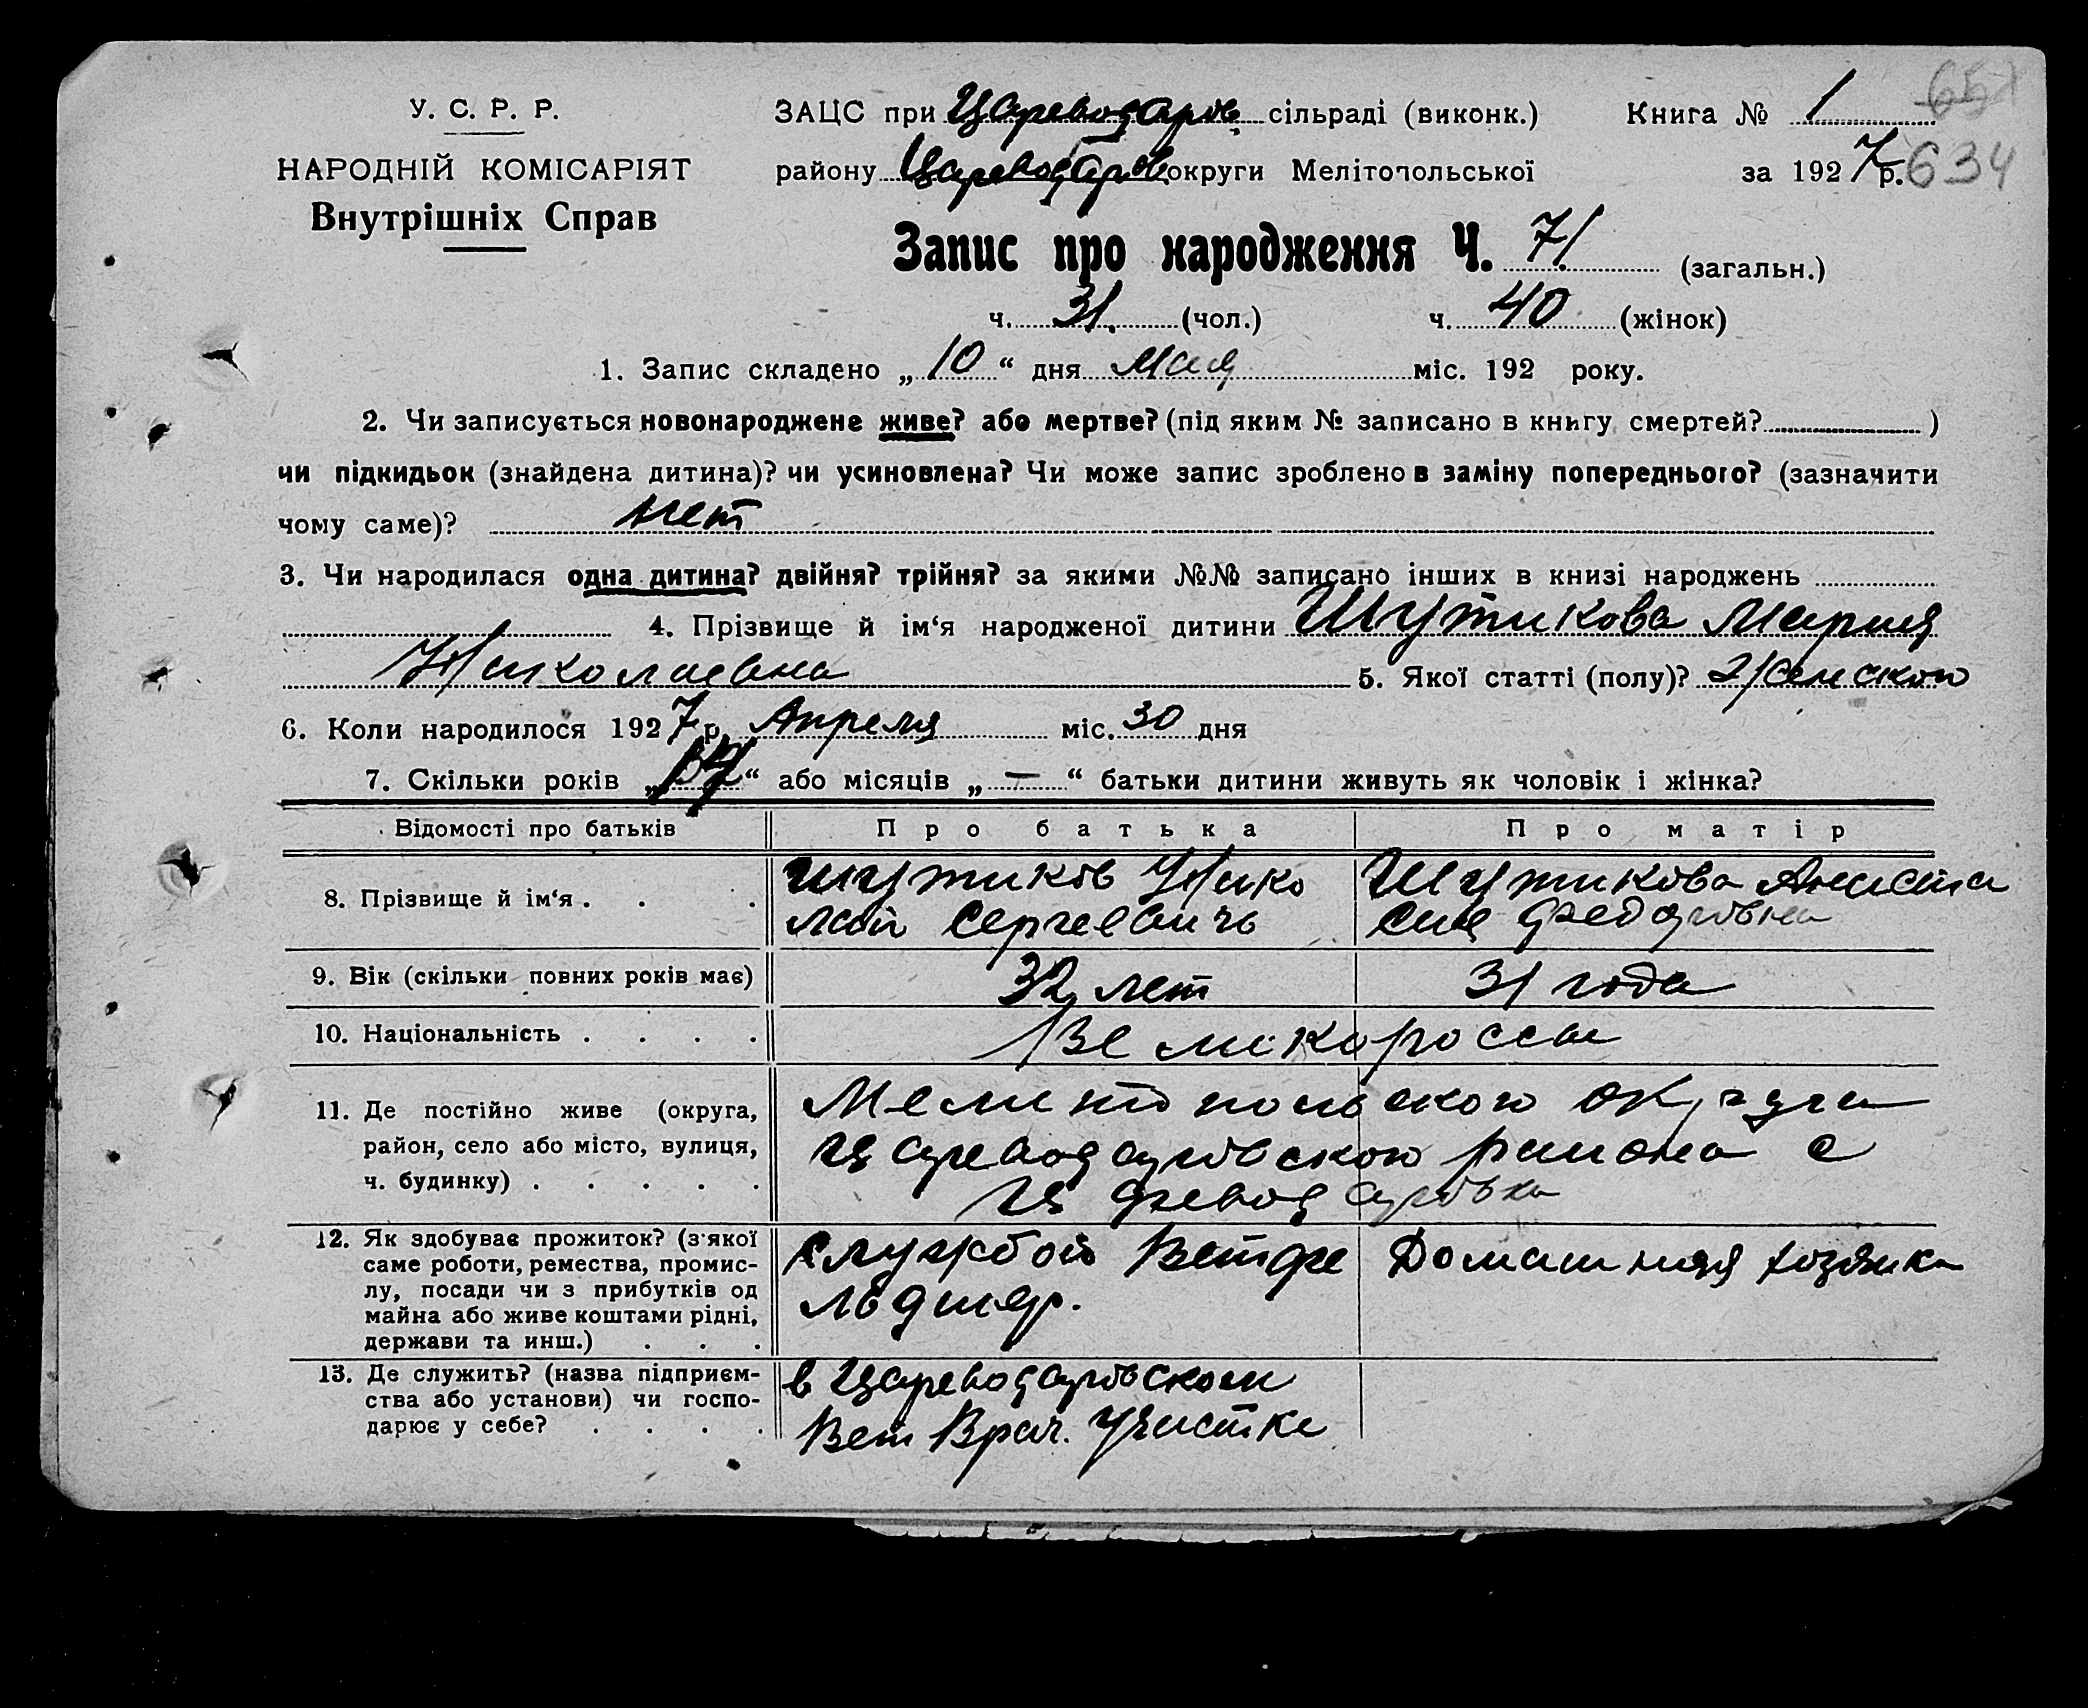 651
У. С. Р. Р.
НАРОДНІЙ КОМІСАРІЯТ
Внутрішніх Справ
ЗАЦС при Цареводаров. сільраді (виконк.) Книга № 1
району Цареводаров округи Мелітопольської за 1927 р. 634
Запис про народження Ч. 71 (загальн.)
ч. 31. (чол.) ч. 40 (жінок)
1. Запис складено „10“ дня Мая міс. 192 року.
2. Чи записується новонароджене живе? або мертве? (під яким № записано в книгу смертей? )
чи підкидьок (знайдена дитина)? чи усиновлена? Чи може запис зроблено в заміну попереднього? (зазначити
чому саме)? нет
3. Чи народилася одна дитина? двійня? трійня? за якими №№ записано інших в книзі народжень
4. Прізвище й ім‘я народженої дитини Шутикова Мария
Николаевна 5. Якої статті (полу)? Женского
6. Коли народилося 1927 р. Апреля міс. 30 дня
7. Скільки років „ “ або місяців „—“ батьки дитини живуть як чоловік і жінка?
Відомості про батьків Про батька Про матір
8. Прізвище й ім‘я . . . Шутиков Нико Шутикова Анаста
лай Сергеевичь сия Федоровна
9. Вік (скільки повних років має) 32 лет 31 года
10. Національність . . . . Великороссы
11. Де постійно живе (округа, Мелитопольского округа
район, село або місто, вулиця, Цареводаровского района с
ч. будинку) . . . . . Цареводаровка
12. Як здобуває прожиток? (з'якої службой Ветфе Домашняя хозяйка
саме роботи, ремества, промис- льдшер.
лу, посади чи з прибутків од
майна або живе коштами рідні,
держави та инш.) . . .
13. Де служить? (назва підприєм- в Цареводаровском
ства або установи) чи госпо- Вет Врач. Участке
дарює у себе? . . . .